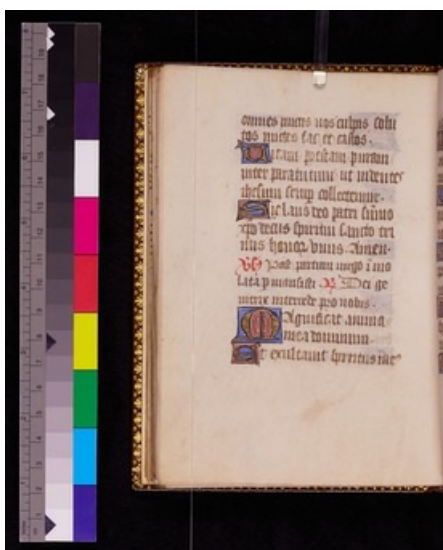 omnes mitis nos culpis solu
tos mites fac et castos.
Uitam prestam puram
iter para tutum ut uidentes
ihesum semper collectemur.
Sit laus deo patri summo
xpo decus spiritui sancto tri
nus honor unus. Amen.
V Post partum uirgo inuio
lata permansisti. R Dei ge
nitrix intercede pro nobis.
Magnificat anima
mea dominum.
Et exultauit spiritus meus